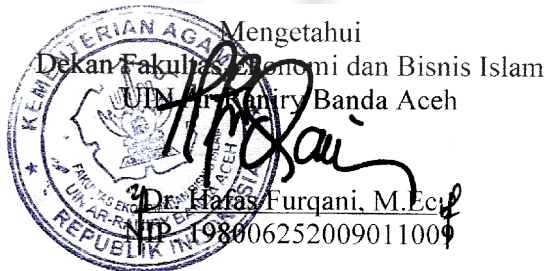 Mengetahui
Dekan Fakultas Ekonomi dan Bisnis Islam
UIN Ar-Raniry Banda Aceh
Dr. Hafas Furqani, M.Ec
NIP. 198006252009011009
KEMENTERIAN AGAMA
REPUBLIK INDONESIA
FAKULTAS EKONOMI DAN BISNIS ISLAM
UIN AR-RANIRY BANDA ACEH